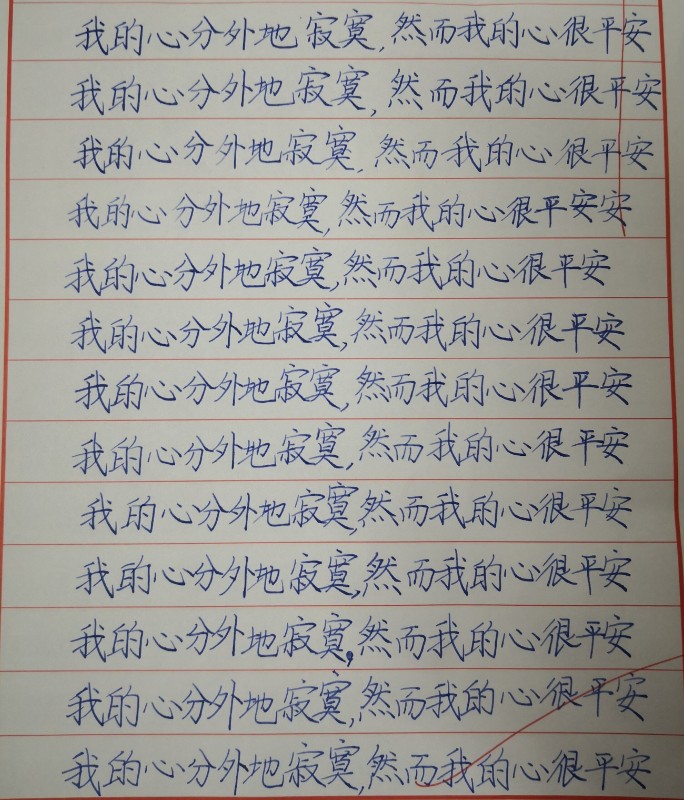 我的心分外地寂寞,然而我的心很平安
我的心分外地寂寞,然而我的心很平安
我的心分外地寂寞,然而我的心很平安
我的心分外地寂寞,然而我的心很平安安
我的心分外地寂寞,然而我的心很平安
我的心分外地寂寞,然而我的心很平安
我的心分外地寂寞,然而我的心很平安
我的心分外地寂寞,然而我的心很平安
我的心分外地寂寞,然而我的心很平安
我的心分外地寂寞,然而我的心很平安
我的心分外地寂寞,然而我的心很平安
我的心分外地寂寞,然而我的心很平安
我的心分外地寂寞,然而我的心很平安